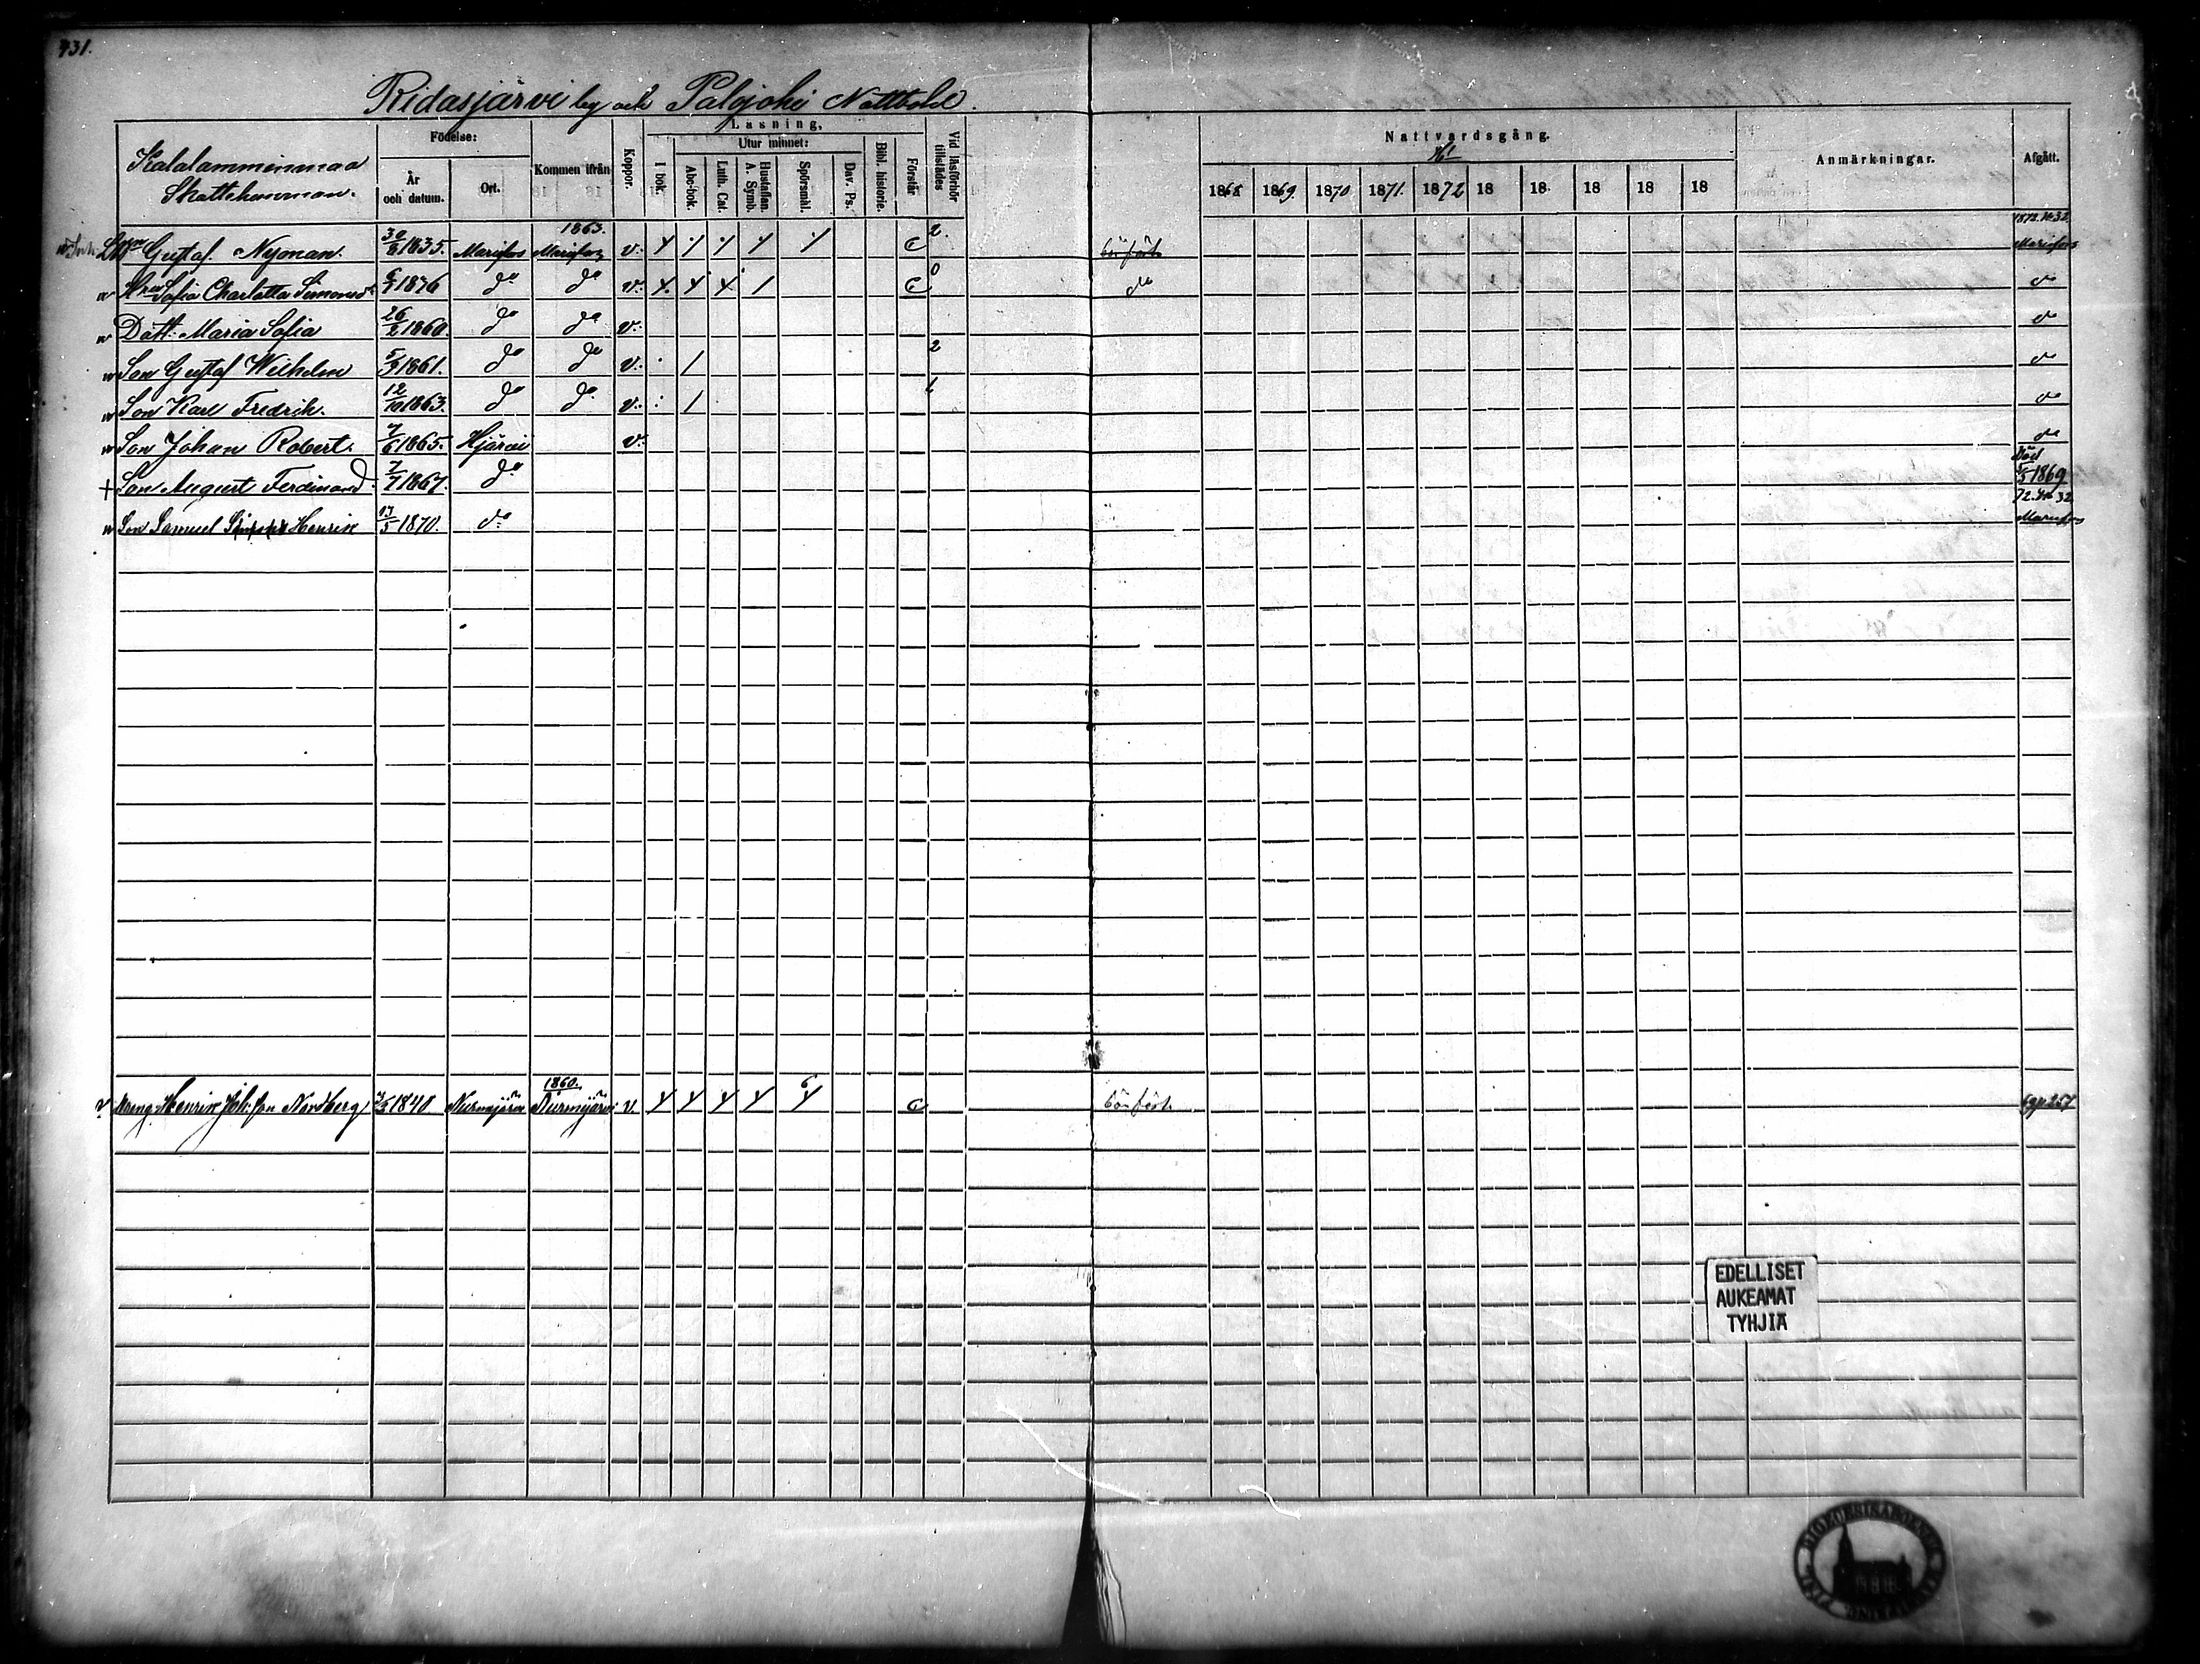 431.
Ridasjärvi by och Palojoki Nattbole.
Kalalamminmaa
Skattehemman.
Födelse:
År
och datum.
Ort.
Kommen ifrån
Koppor.
Läsning,
I bok.
Utur minnet:
Abc-bok.
Luth. Cat.
Hustaflan. A. Symb.
Spörsmål.
Dav. Ps.
Bibl. historie.
Förstår
Vid läsförhör tillstädes
Nattvardsgång.
1868 1869. 1870 1871. 1872 18 18 18 18 18
Anmärkningar.
Afgått.
Gustaf Nyman. 30/8 1835. Mariefors 1863. Mariefors v. c 2. 1872. No 32 Mariefors
Sofia Charlotta Simonsd. 1876 do do v. c 0 do do
Dott: Maria Sofia 26/2 1860. do do v. do
Son Gustaf Wilhelm 5/3 1861. do do v. 2 do
Son Karl Fredrik. 12/10 1863. do do v. 1 do
Son Johan Robert. 7/6 1865. Hjärvi v. do
+ Son August Ferdinand. 7/7 1867. do Död 5/5 1869
Son Samuel Henrik 17/5 1870. do 72. No 32 Mariefors
Dreng Henrik Joh:son Nordberg 1840 Nurmijärvi 1860. Nurmijärvi v. 6 c p 257
EDELLISET
AUKEAMAT
TYHJIÄ